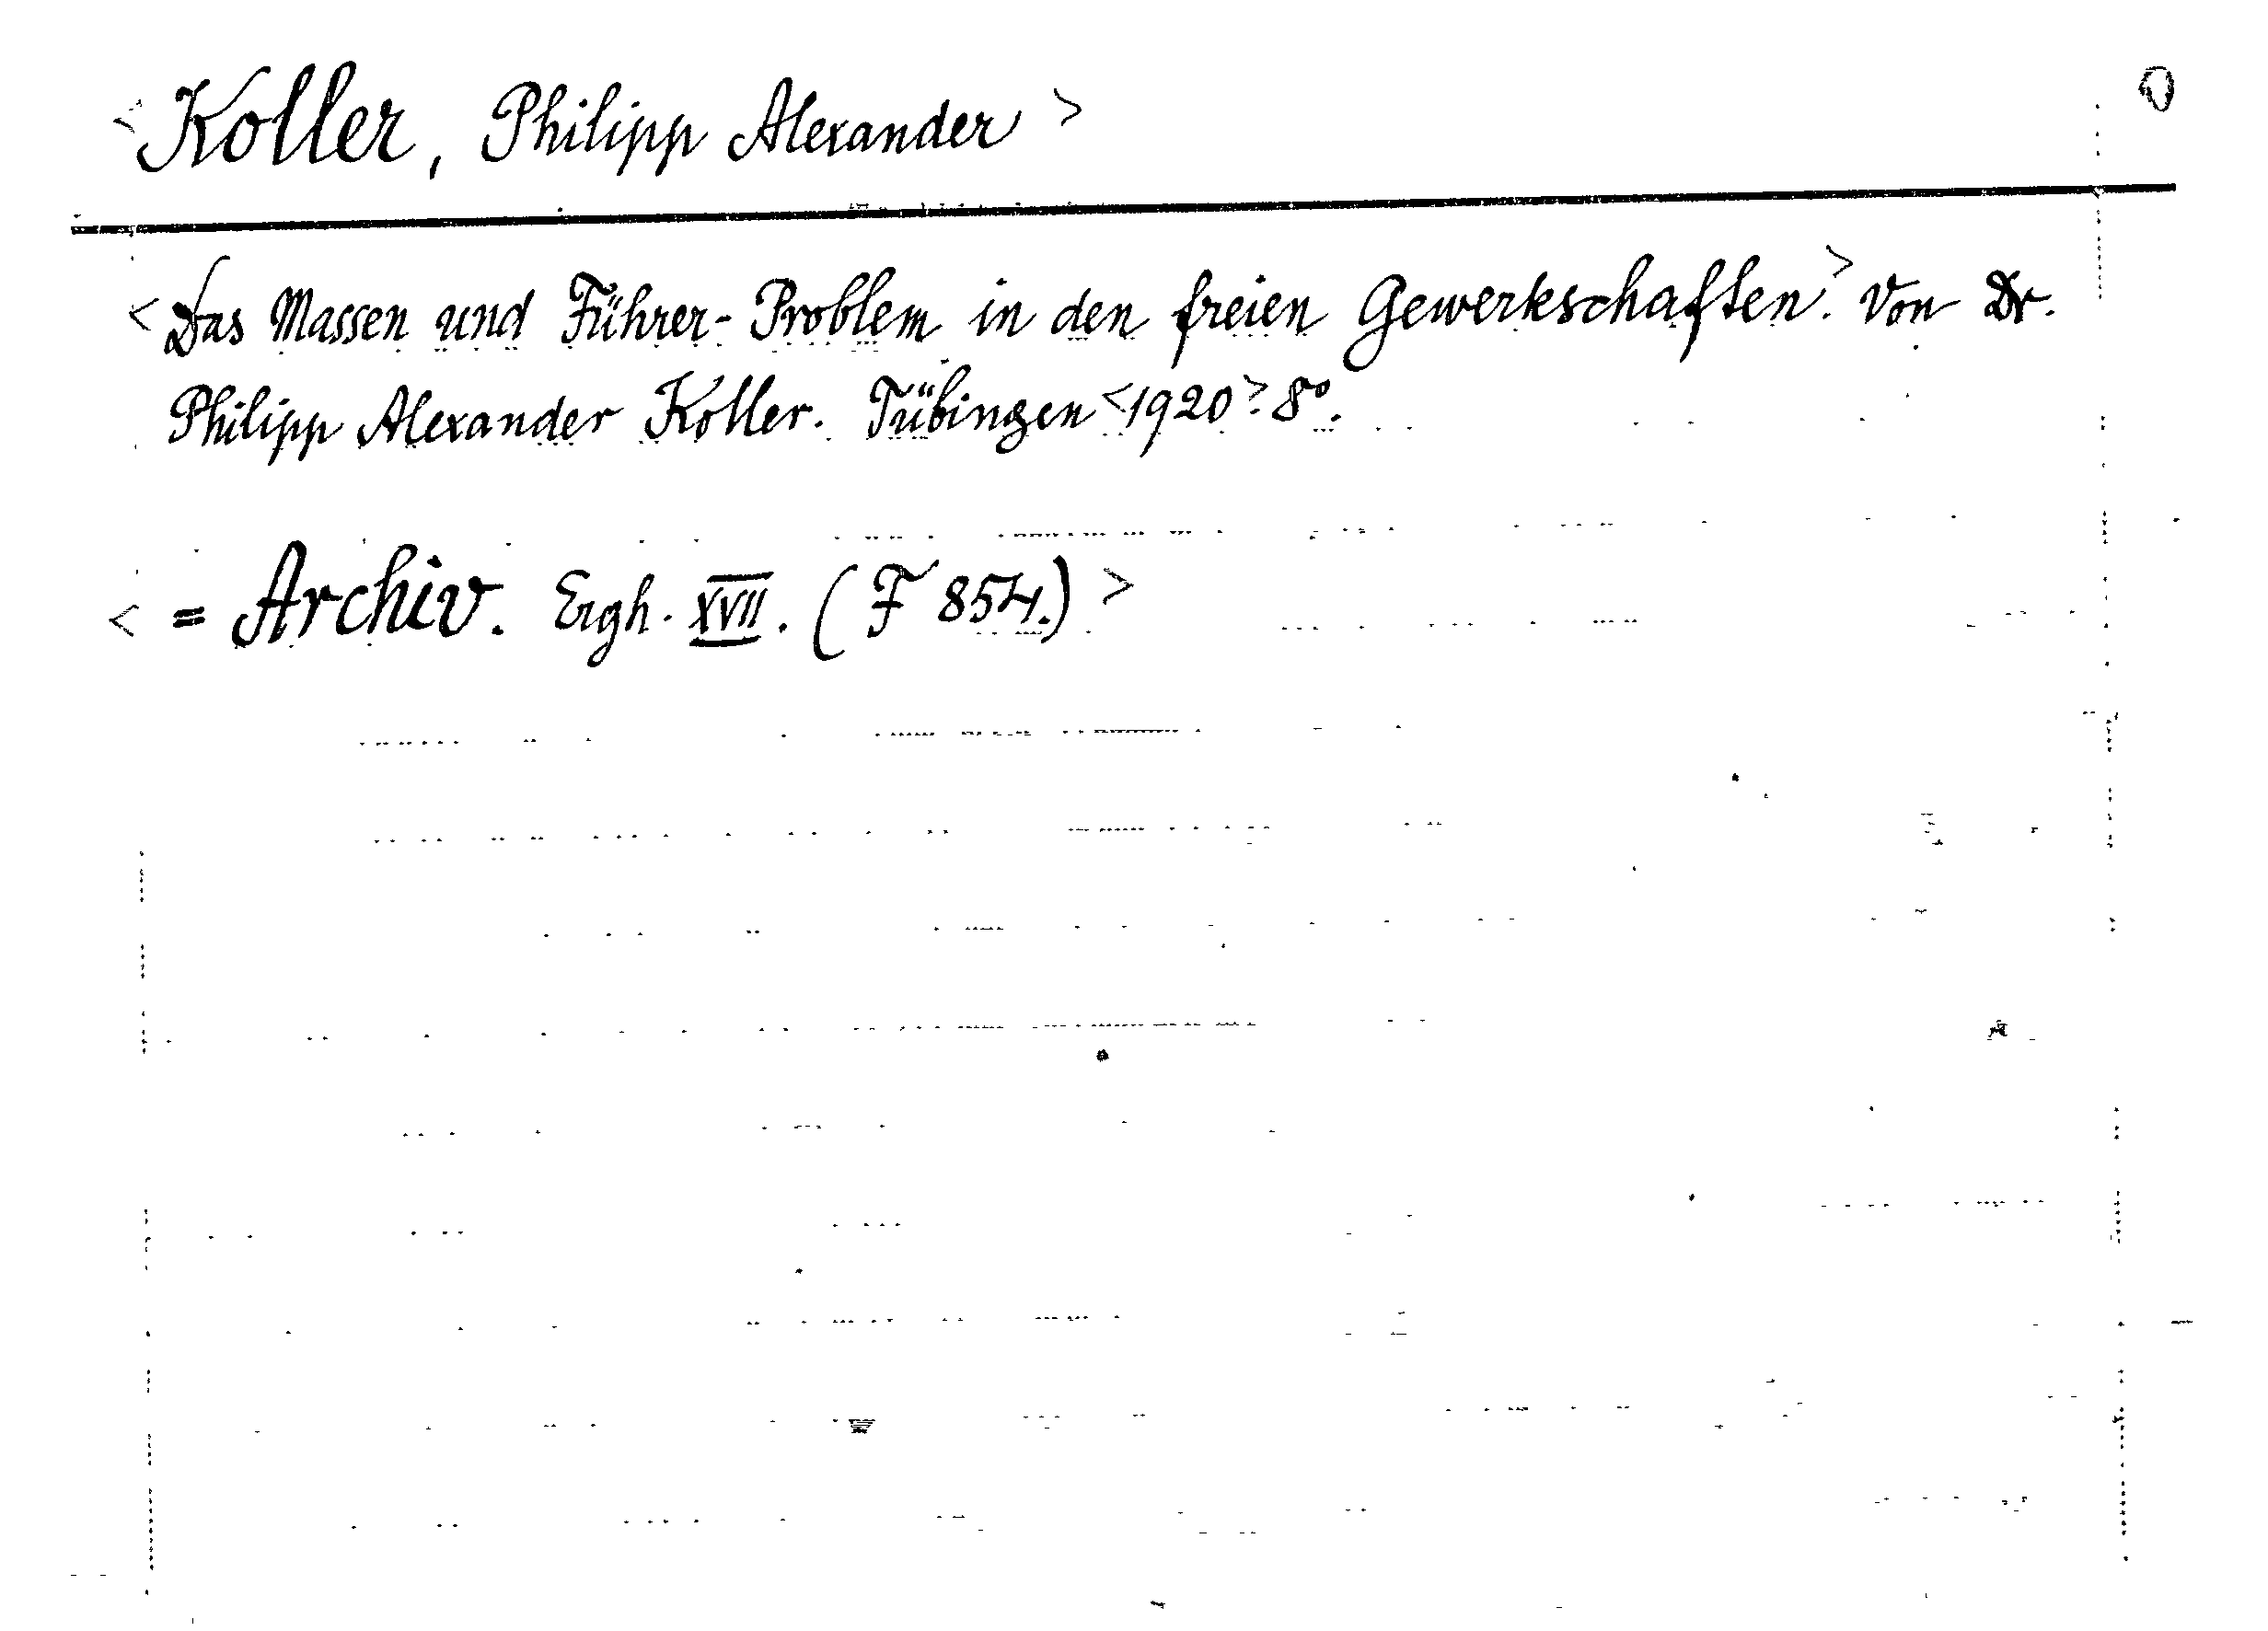 <Koller, Philipp Alexander>
<Das Massen und Führer-Problem in den freien Gewerkschaften.> Von Dr.
Philipp Alexander Koller. Tübingen <1920>. 8°.
< = Archiv. Ergh. XVII. (F 854.) >